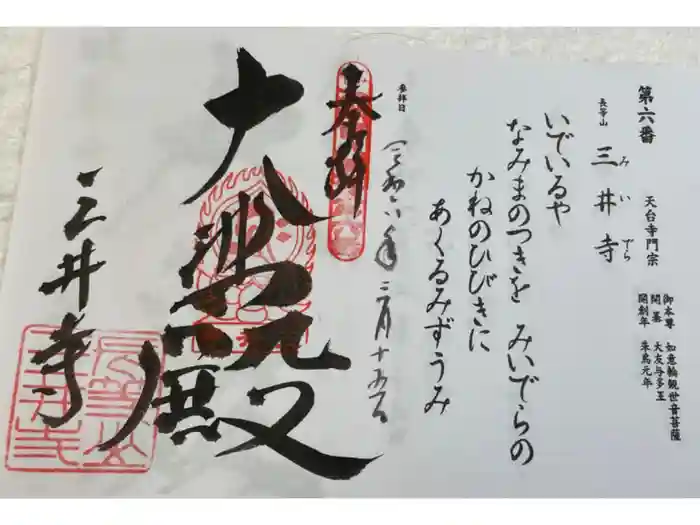 第六番
長等山 三井寺
みいでら
天台寺門宗
御本尊 如意輪観世音菩薩
開基 大友与多王
開創年 朱鳥元年
いでいるや
なみまのつきを みいでらの
かねのひびきに
あくるみずうみ
参拝日
令和六年二月十五日
奉拝
大悲殿
三井寺